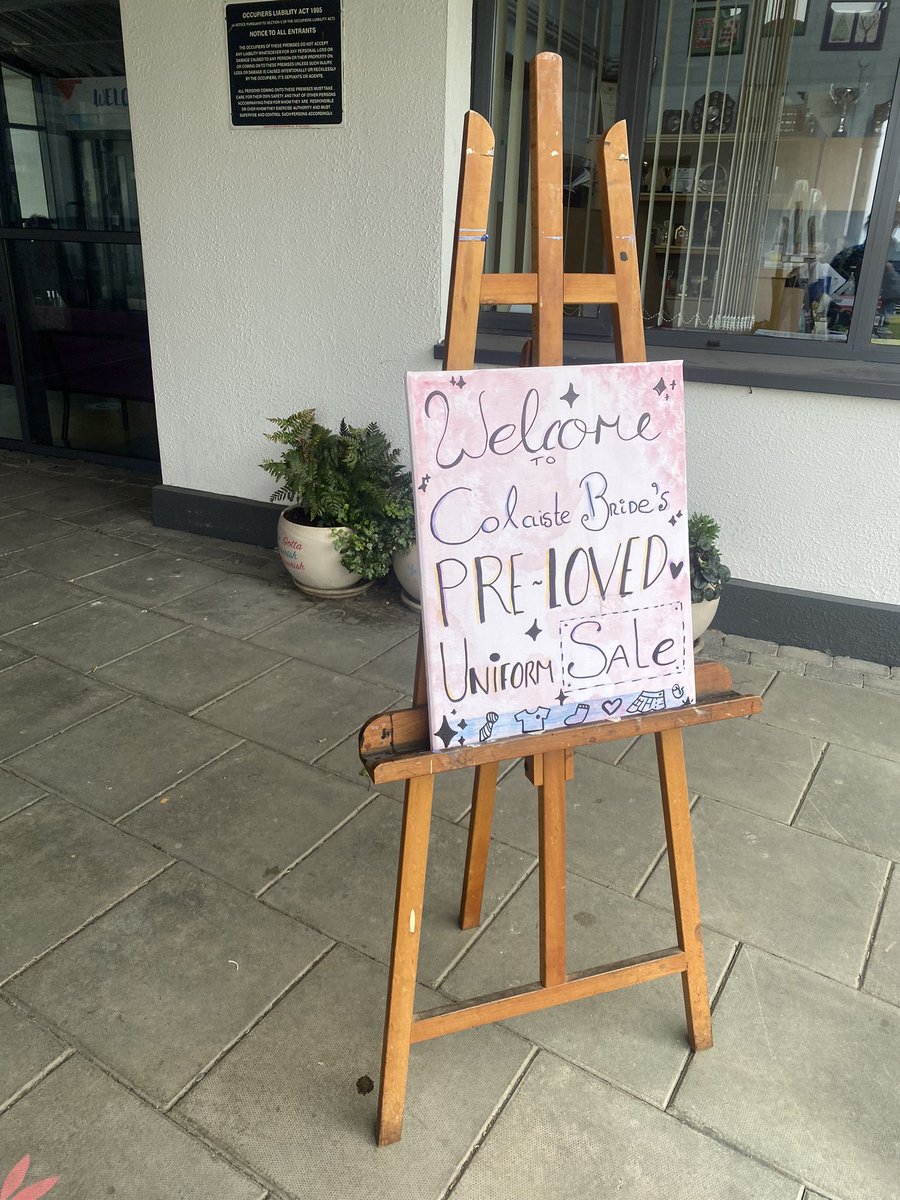 OCCUPIERS LIABILITY ACT 1995
(A NOTICE PURSUANT TO SECTION 5 OF THE OCCUPIERS LIABILITY ACT)
NOTICE TO ALL ENTRANTS
THE OCCUPIERS OF THESE PREMISES DO NOT ACCEPT
ANY LIABILITY WHATSOEVER FOR ANY PERSONAL LOSS OR
DAMAGE CAUSED TO ANY PERSON OR THEIR PROPERTY ON
OR COMING ONTO THESE PREMISES UNLESS SUCH INJURY,
LOSS OR DAMAGE IS CAUSED INTENTIONALLY OR RECKLESSLY
BY THE OCCUPIERS, IT'S SERVANTS OR AGENTS.
ALL PERSONS COMING ONTO THESE PREMISES MUST TAKE
CARE FOR THEIR OWN SAFETY AND THAT OF OTHER PERSONS
ACCOMPANYING THEM FOR WHOM THEY ARE RESPONSIBLE
OR OVER WHOM THEY EXERCISE AUTHORITY AND MUST
SUPERVISE AND CONTROL SUCH PERSONS ACCORDINGLY.
WELC
Welcome
TO
Colaiste Bride's
PRE-LOVED
UNIFORM SALe
Gotta